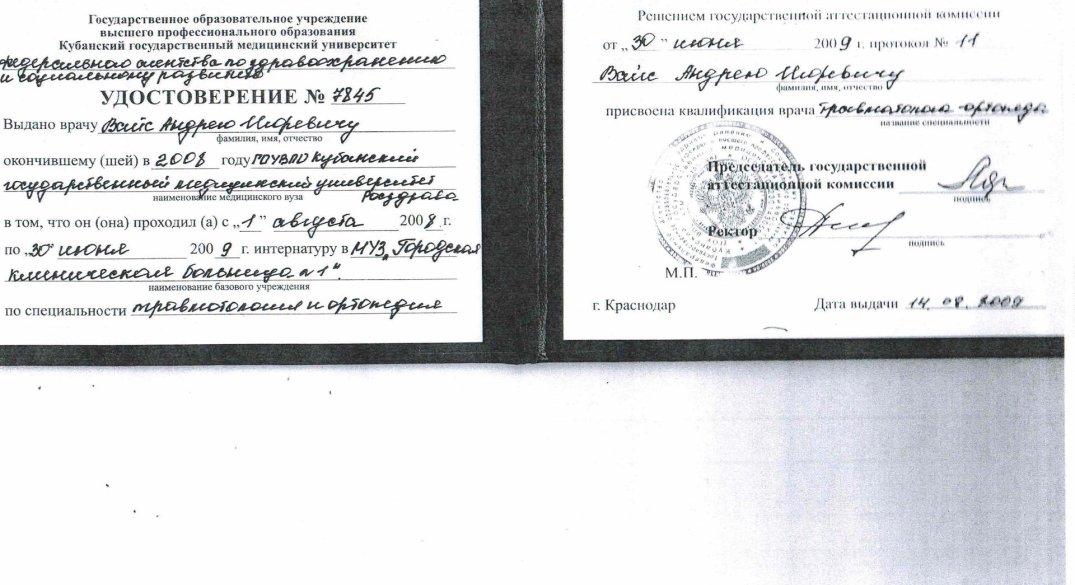 Государственное образовательное учреждение
высшего профессионального образования
Кубанский государственный медицинский университет
федерального агентства по здравоохранению
и социальному развитию
УДОСТОВЕРЕНИЕ № 7845
Выдано врачу Вайс Андрею Игоревичу
фамилия, имя, отчество
окончившему (шей) в 2008 году ГОУВПО Кубанский
государственный медицинский университет
наименование медицинского вуза Росздрава
в том, что он (она) проходил (а) с „1” августа 2008 г.
по „30” июня 2009 г. интернатуру в МУЗ „Городская
клиническая больница №1”.
наименование базового учреждения
по специальности травматология и ортопедия
Решением государственной аттестационной комиссии
от „30” июня 2009 г. протокол № 11
Вайс Андрею Игоревичу
фамилия, имя, отчество
присвоена квалификация врача травматолога-ортопеда
название специальности
Председатель государственной
аттестационной комиссии
подпись
Ректор
подпись
М.П.
г. Краснодар Дата выдачи 14.08.2009